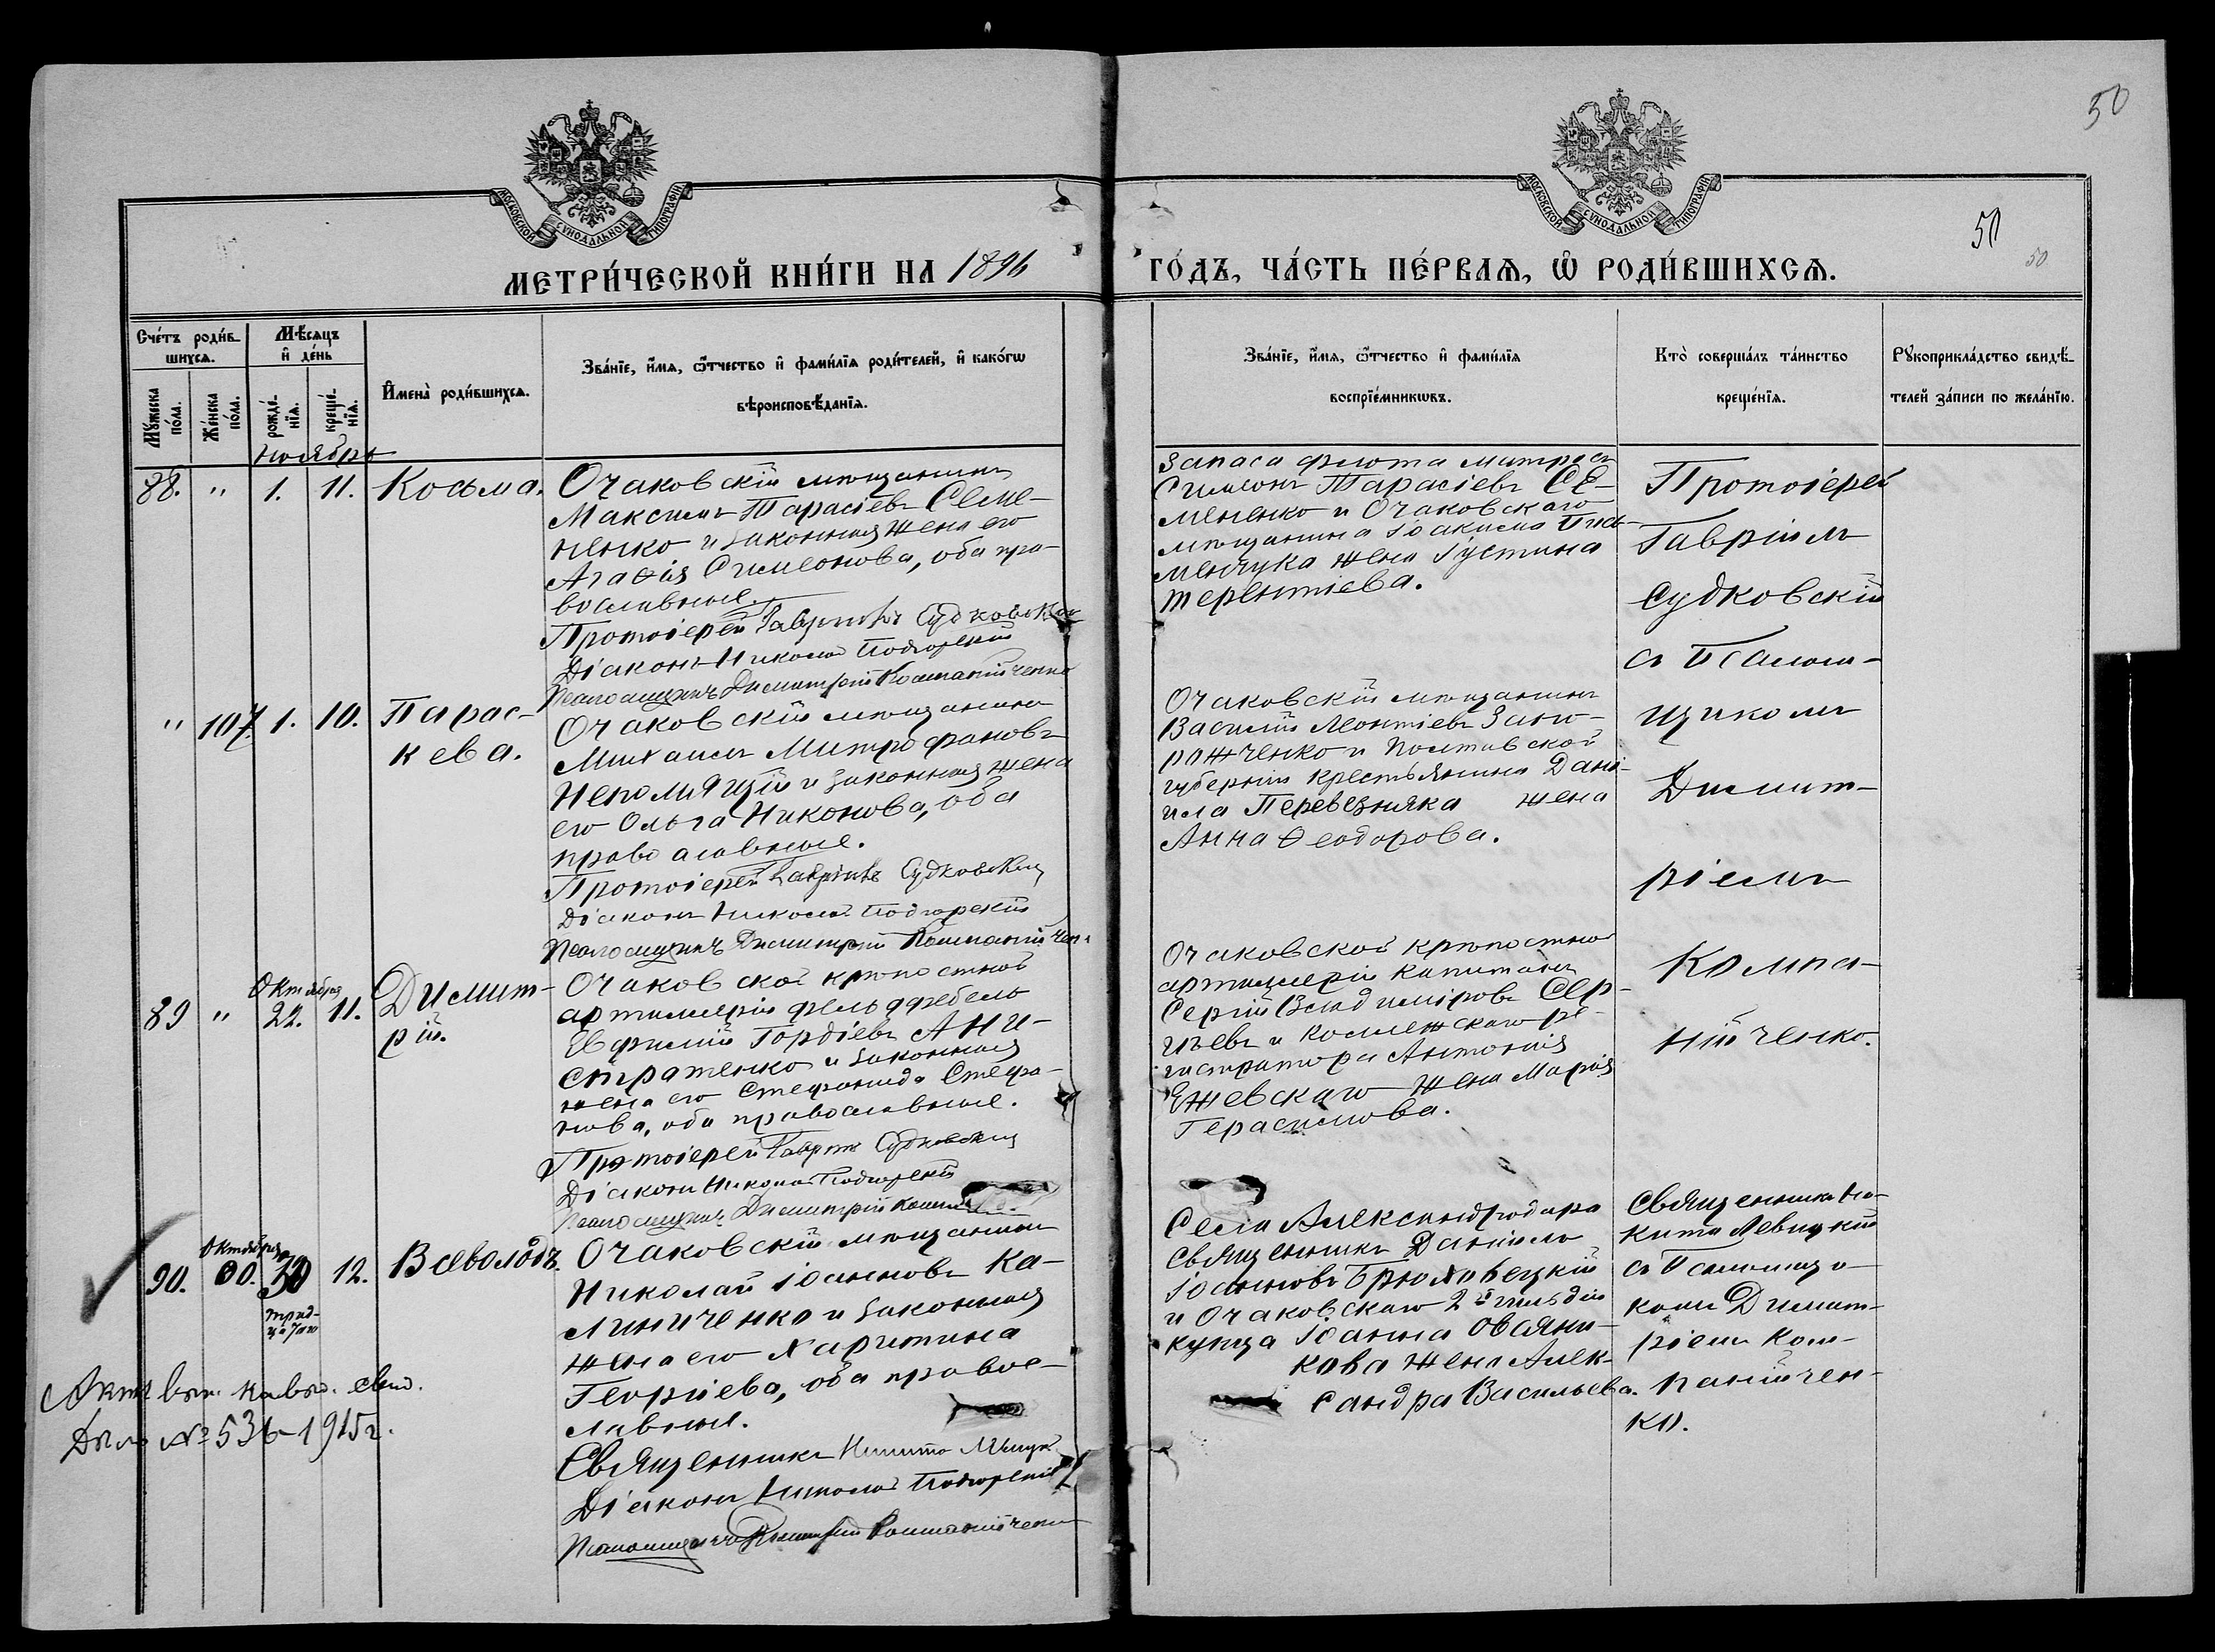 50
МОСКОВСКОЙ СѴНОДАЛЬНОЙ ТИПОГРАФІИ
МОСКОВСКОЙ СѴНОДАЛЬНОЙ ТИПОГРАФІИ
50
50
МЕТРИ́ЧЕСКОЙ КНИ́ГИ НА 1896
ГО́ДЪ, ЧА́СТЬ ПЕ́РВАѦ, Ѡ҆ РОДИ́ВШИХСѦ.
Сче́тъ роди́в-
шихсѧ.
Мѣ́сѧцъ
и҆ де́нь
Мꙋ́жеска
по́ла.
Же́нска
по́ла.
рожде́-
нїѧ.
креще́-
нїѧ.
И҆мена̀ роди́вшихсѧ.
Зва́нїе, и҆́мѧ, ѻ҆́тчество и҆ фами́лїѧ роди́телей, и҆ како́гѡ
вѣроисповѣ́данїѧ.
Зва́нїе, и҆́мѧ, ѻ҆́тчество и҆ фами́лїѧ
воспрїе́мникѡвъ.
Кто̀ соверша́лъ та́инство
креще́нїѧ.
Рꙋкоприкла́дство свидѣ́-
телей за́писи по жела́нїю.
Ноябрь
88. " 1. 11. Косьма.
Очаковскій мѣщанинъ
Максимъ Тарасіевъ Семе-
ненко и законная жена его
Агаѳія Симеонова, оба пра-
вославные.
Протоіерей Гавріилъ Судковскій
Діаконъ Николай Подгорскій
Псаломщикъ Димитрій Компанійченко
Запаса флота матросъ
Симеонъ Тарасіевъ Се-
мененко и Очаковскаго
мѣщанина Іоакима Пись-
менчука жена Іустина
Терентіева.
Протоіерей
Гавріилъ
Судковскій
съ Псалом-
щикомъ
Димит-
ріемъ
Компа-
нійченко.
" 107 1. 10. Парас-
кева.
Очаковскій мѣщанинъ
Михаилъ Митрофановъ
Непомящій и законная жена
его Ольга Никонова, оба
православные.
Протоіерей Гавріилъ Судковскій
Діаконъ Николай Подгорскій
Псаломщикъ Димитрій Компанійчен
Очаковскій мѣщанинъ
Василій Леонтіевъ Запо-
рожченко и Полтавской
губерніи крестьянина Дані-
ила Перевезняка жена
Анна Ѳеодорова.
Октября
89 " 22. 11. Димит-
рій.
Очаковской крѣпостной
артиллеріи фельдфебель
Евфимій Гордіевъ Ани-
стратенко и законная
жена его Стефанида Стефа-
нова, оба православные.
Протоіерей Гавріилъ Судковскій
Діаконъ Николай Подгорскій
Псаломщикъ Димитрій
Очаковской крѣпостной
артиллеріи капитанъ
Сергій Владиміровъ Сер-
гѣевъ и коллежскаго ре-
гистратора Антонія
Ежевскаго жена Марія
Герасимова.
Октября
90. 30 12. Всеволодъ.
трид-
цатаго
Очаковскій мѣщанинъ
Николай Іоанновъ Ка-
линиченко и законная
жена его Харитина
Георгіева, оба правос-
лавные.
Священникъ Никита Левицк
Діаконъ Николай Подгорскій
Псаломщикъ Димитрій Компанійченко
Села Александродара
священникъ Даніилъ
Іоанновъ Брюховецкій
и Очаковскаго 2й гильдіи
купца Іоанна Овсяни-
кова жена Алек-
сандра Васильева.
Священникъ Ни-
кита Левицкій
съ Псаломщи-
комъ Димит-
ріемъ Ком-
панійчен-
ко.
свид.
Дѣло № 536-1915 г.